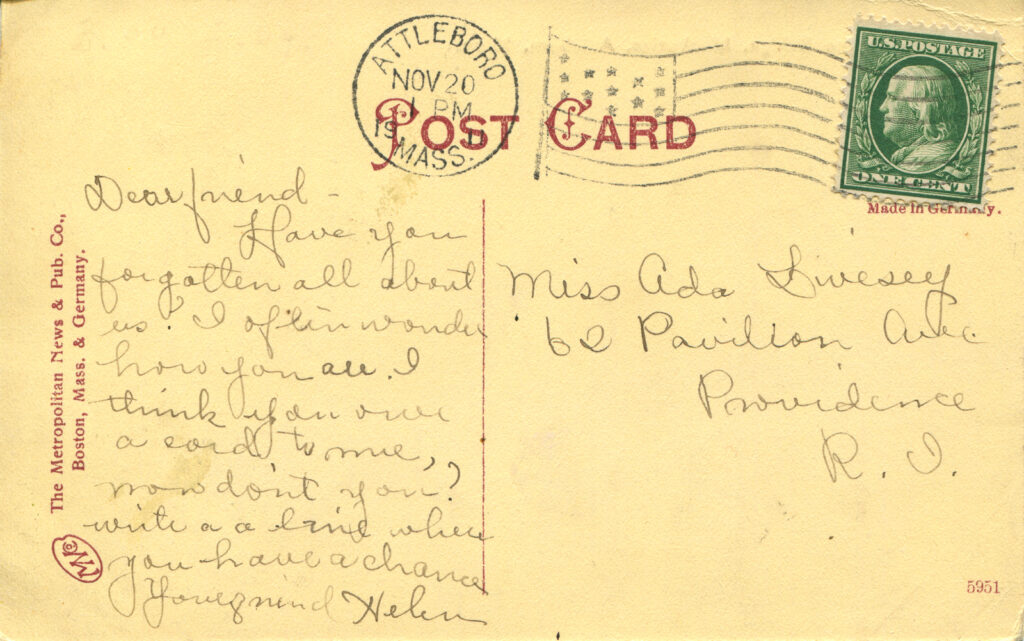 ATTLEBORO
NOV 20
1 PM
1911
MASS.
U.S. POSTAGE
ONE CENT
POST CARD
Made in Germany.
The Metropolitan News & Pub. Co.,
Boston, Mass. & Germany.
Dear friend -
Have you
forgotten all about
us? I often wonder
how you are. I
think you owe
a card to me,
now don't you?
write a a line when
you have a chance
Your friend Helen
Miss Ada Livesey
62 Pavilion Ave
Providence
R. I.
5951